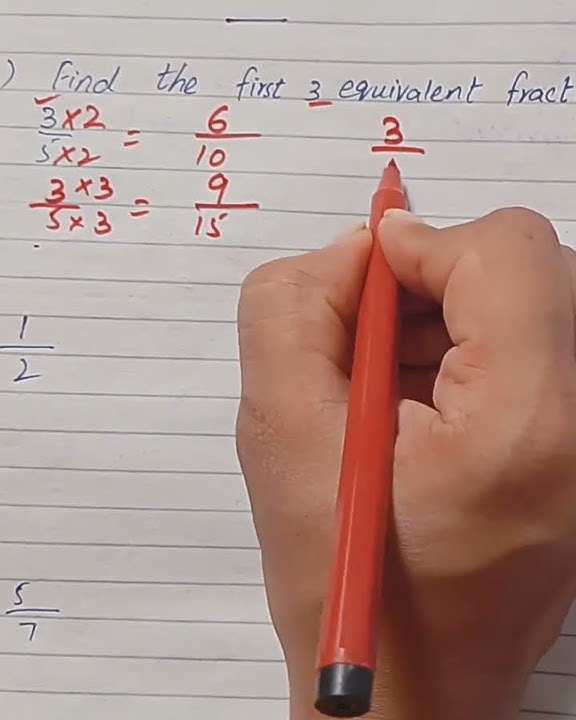 ) Find the first 3 equivalent fract
3×2 / 5×2 = 6/10 3/
3×3 / 5×3 = 9/15
1/2
5/7